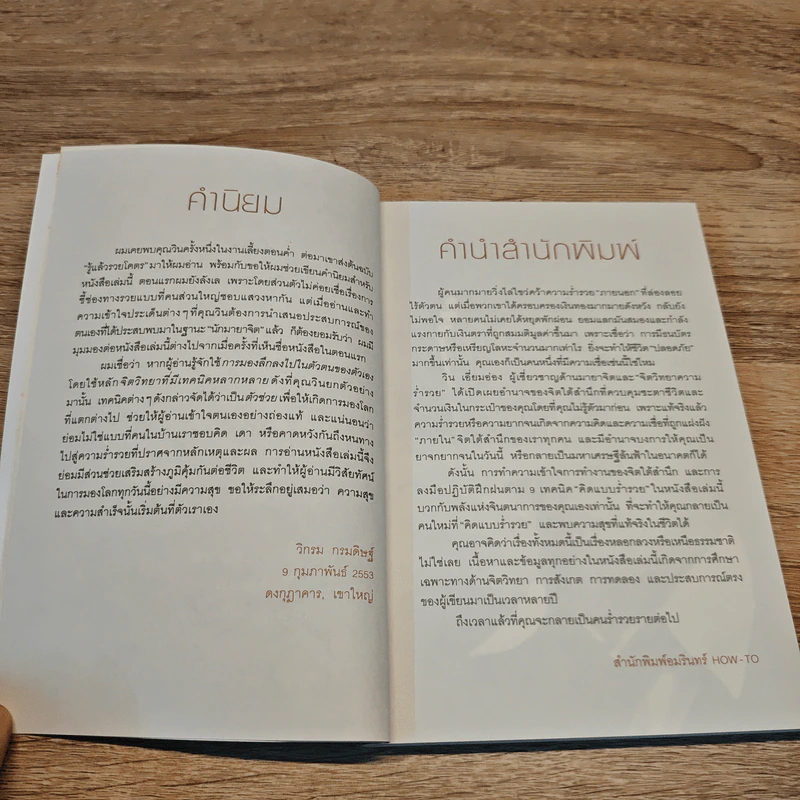 คำนิยม
ผมเคยพบคุณวินครั้งหนึ่งในงานเลี้ยงตอนค่ำ ต่อมาเขาส่งต้นฉบับ
"รู้แล้วรวยโคตร" มาให้ผมอ่าน พร้อมกับขอให้ผมช่วยเขียนคำนิยมสำหรับ
หนังสือเล่มนี้ ตอนแรกผมยังลังเล เพราะโดยส่วนตัวไม่ค่อยเชื่อเรื่องการ
ชี้ช่องทางรวยแบบที่คนส่วนใหญ่ชอบแสวงหากัน แต่เมื่ออ่านและทำ
ความเข้าใจประเด็นต่างๆ ที่คุณวินต้องการนำเสนอประสบการณ์ของ
ตนเองที่ได้ประสบพบมาในฐานะ "นักมายาจิต" แล้ว ก็ต้องยอมรับว่า ผมมี
มุมมองต่อหนังสือเล่มนี้ต่างไปจากเมื่อครั้งที่เห็นชื่อหนังสือในตอนแรก
ผมเชื่อว่า หากผู้อ่านรู้จักใช้การมองลึกลงไปในตัวตนของตัวเอง
โดยใช้หลักจิตวิทยาที่มีเทคนิคหลากหลายดังที่คุณวินยกตัวอย่าง
มานั้น เทคนิคต่างๆ ดังกล่าวถือได้ว่าเป็นตัวช่วย เพื่อให้เกิดการมองโลก
ที่แตกต่างไป ช่วยให้ผู้อ่านเข้าใจตนเองอย่างถ่องแท้ และแน่นอนว่า
ย่อมไม่ใช่แบบที่คนในบ้านเราชอบคิด เดา หรือคาดหวังกันถึงหนทาง
ไปสู่ความร่ำรวยที่ปราศจากหลักเหตุและผล การอ่านหนังสือเล่มนี้จึง
ย่อมมีส่วนช่วยเสริมสร้างภูมิคุ้มกันต่อชีวิต และทำให้ผู้อ่านมีวิสัยทัศน์
ในการมองโลกทุกวันนี้อย่างมีความสุข ขอให้ระลึกอยู่เสมอว่า ความสุข
และความสำเร็จนั้นเริ่มต้นที่ตัวเราเอง
วิกรม กรมดิษฐ์
9 กุมภาพันธ์ 2553
ดงกุฎาคาร, เขาใหญ่
คำนำสำนักพิมพ์
ผู้คนมากมายวิ่งไล่ไขว่คว้าความร่ำรวย "ภายนอก" ที่ล่องลอย
ไร้ตัวตน แต่เมื่อพวกเขาได้ครอบครองเงินทองมากมายดังหวัง กลับยัง
ไม่พอใจ หลายคนไม่เคยได้หยุดพักผ่อน ยอมแลกมันสมองและกำลัง
แรงกายกับเงินตราที่ถูกสมมติมูลค่าขึ้นมา เพราะเชื่อว่า การมีธนบัตร
กระดาษหรือเหรียญโลหะจำนวนมากเท่าไร ยิ่งจะทำให้ชีวิต "ปลอดภัย"
มากขึ้นเท่านั้น คุณเองก็เป็นคนหนึ่งที่มีความเชื่อเช่นนี้ใช่ไหม
วิน เอี่ยมอ่อง ผู้เชี่ยวชาญด้านมายาจิตและ "จิตวิทยาความ
ร่ำรวย" ได้เปิดเผยอำนาจของจิตใต้สำนึกที่ควบคุมชะตาชีวิตและ
จำนวนเงินในกระเป๋าของคุณโดยที่คุณไม่รู้ตัวมาก่อน เพราะแท้จริงแล้ว
ความร่ำรวยหรือความยากจนเกิดจากความคิดและความเชื่อที่ถูกแฝงฝัง
"ภายใน" จิตใต้สำนึกของเราทุกคน และมีอำนาจบงการให้คุณเป็น
ยาจกยากจนในวันนี้ หรือกลายเป็นมหาเศรษฐีล้นฟ้าในอนาคตก็ได้
ดังนั้น การทำความเข้าใจการทำงานของจิตใต้สำนึก และการ
ลงมือปฏิบัติฝึกฝนตาม 9 เทคนิค "คิดแบบร่ำรวย" ในหนังสือเล่มนี้
บวกกับพลังแห่งจินตนาการของคุณเองเท่านั้น ที่จะทำให้คุณกลายเป็น
คนใหม่ที่ "คิดแบบร่ำรวย" และพบความสุขที่แท้จริงในชีวิตได้
คุณอาจคิดว่าเรื่องทั้งหมดนี้เป็นเรื่องหลอกลวงหรือเหนือธรรมชาติ
ไม่ใช่เลย เนื้อหาและข้อมูลทุกอย่างในหนังสือเล่มนี้เกิดจากการศึกษา
เฉพาะทางด้านจิตวิทยา การสังเกต การทดลอง และประสบการณ์ตรง
ของผู้เขียนมาเป็นเวลาหลายปี
ถึงเวลาแล้วที่คุณจะกลายเป็นคนร่ำรวยรายต่อไป
สำนักพิมพ์อมรินทร์ HOW-TO